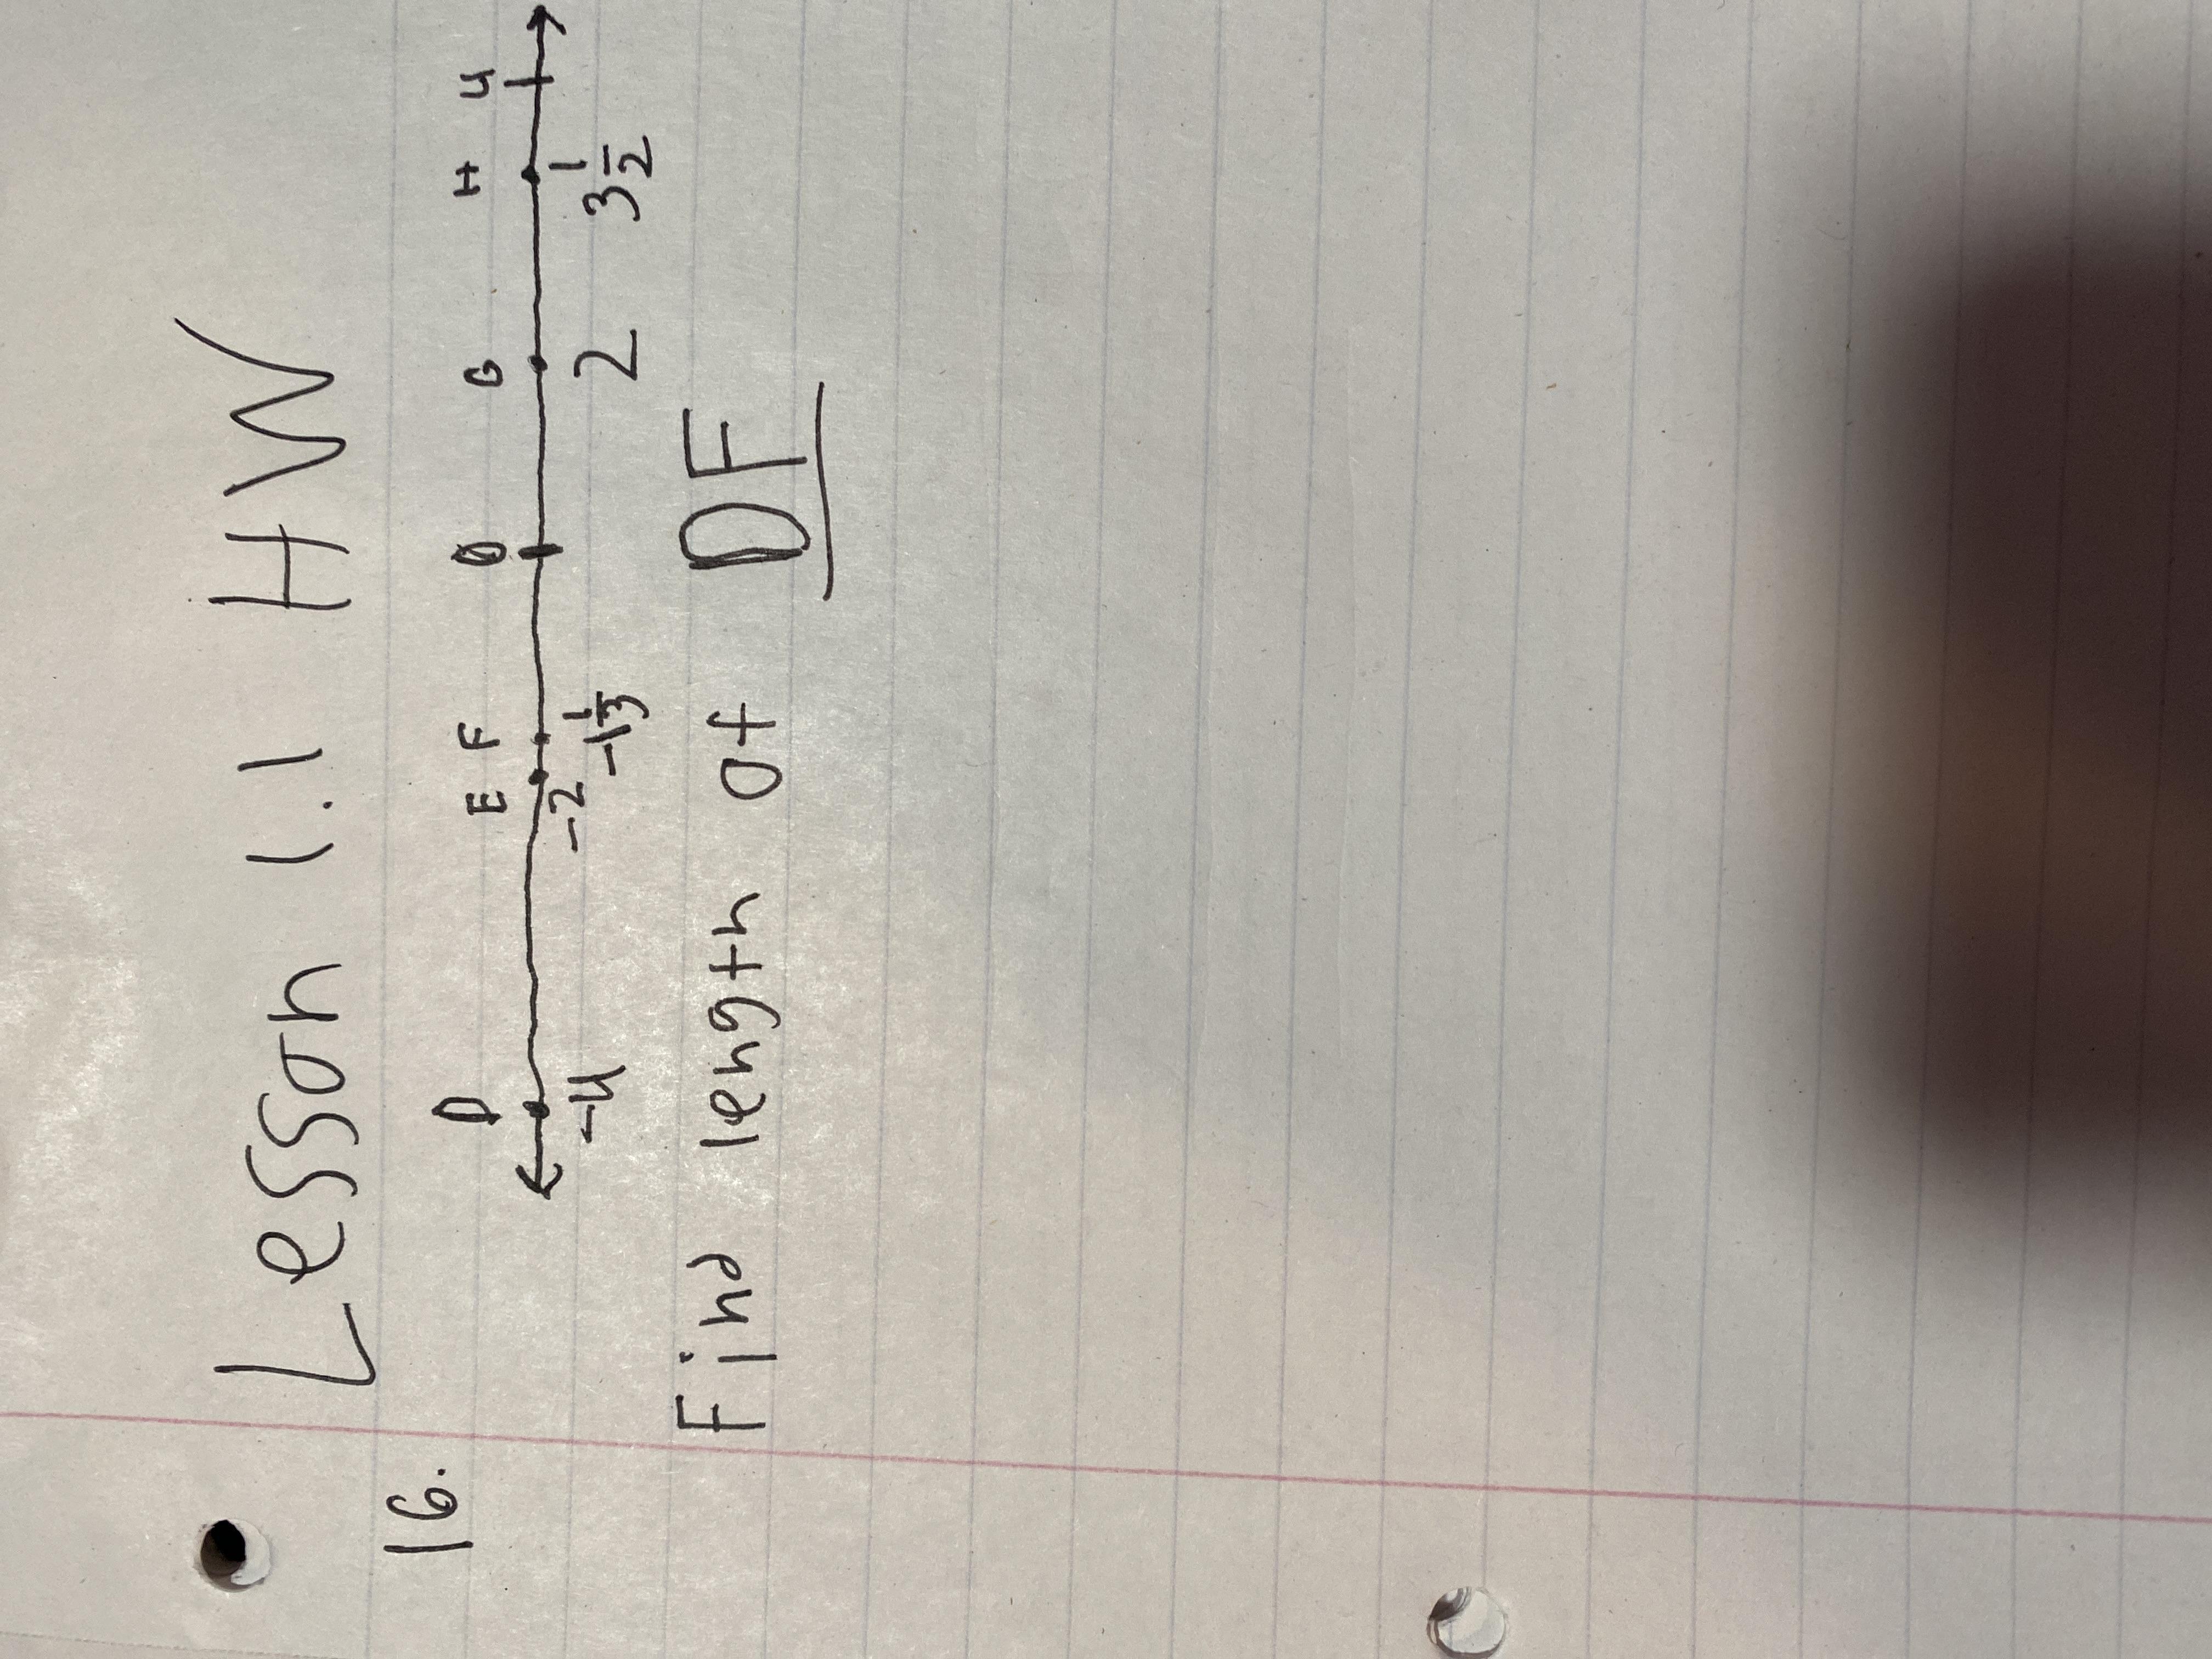 Lesson 1.1 HW
16.
D E F 0 G H 4
-4 -2 -1 1/3 2 3 1/2
Find length of DF